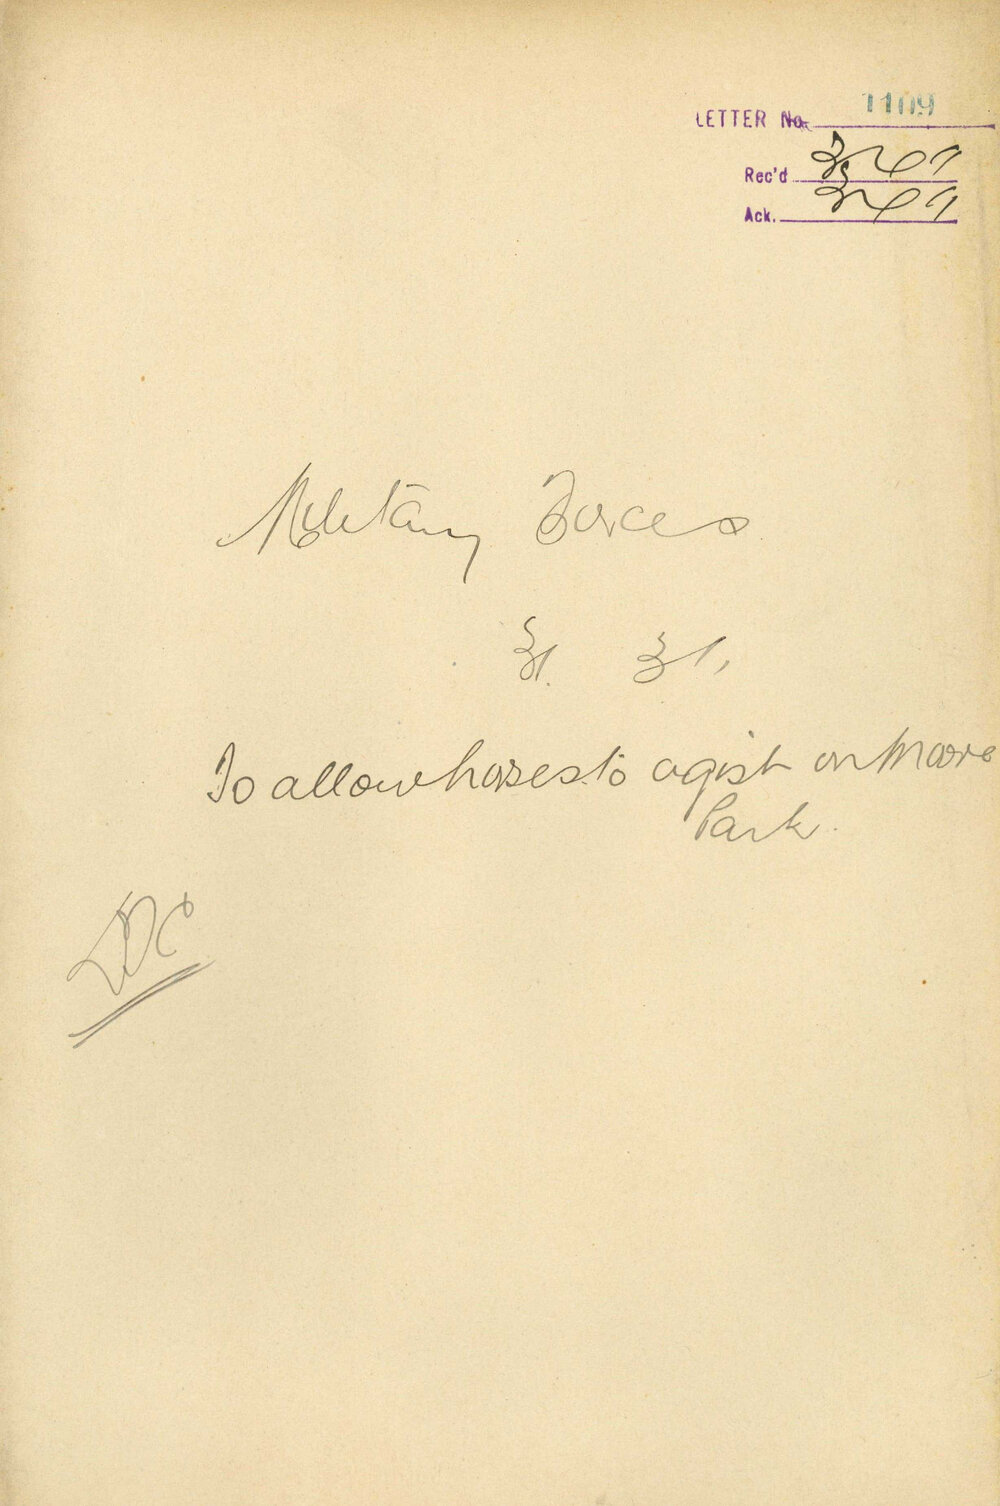 LETTER No. 1109
Rec'd
Ack.
Military Forces
To allow horses to agist on Moore
Park.